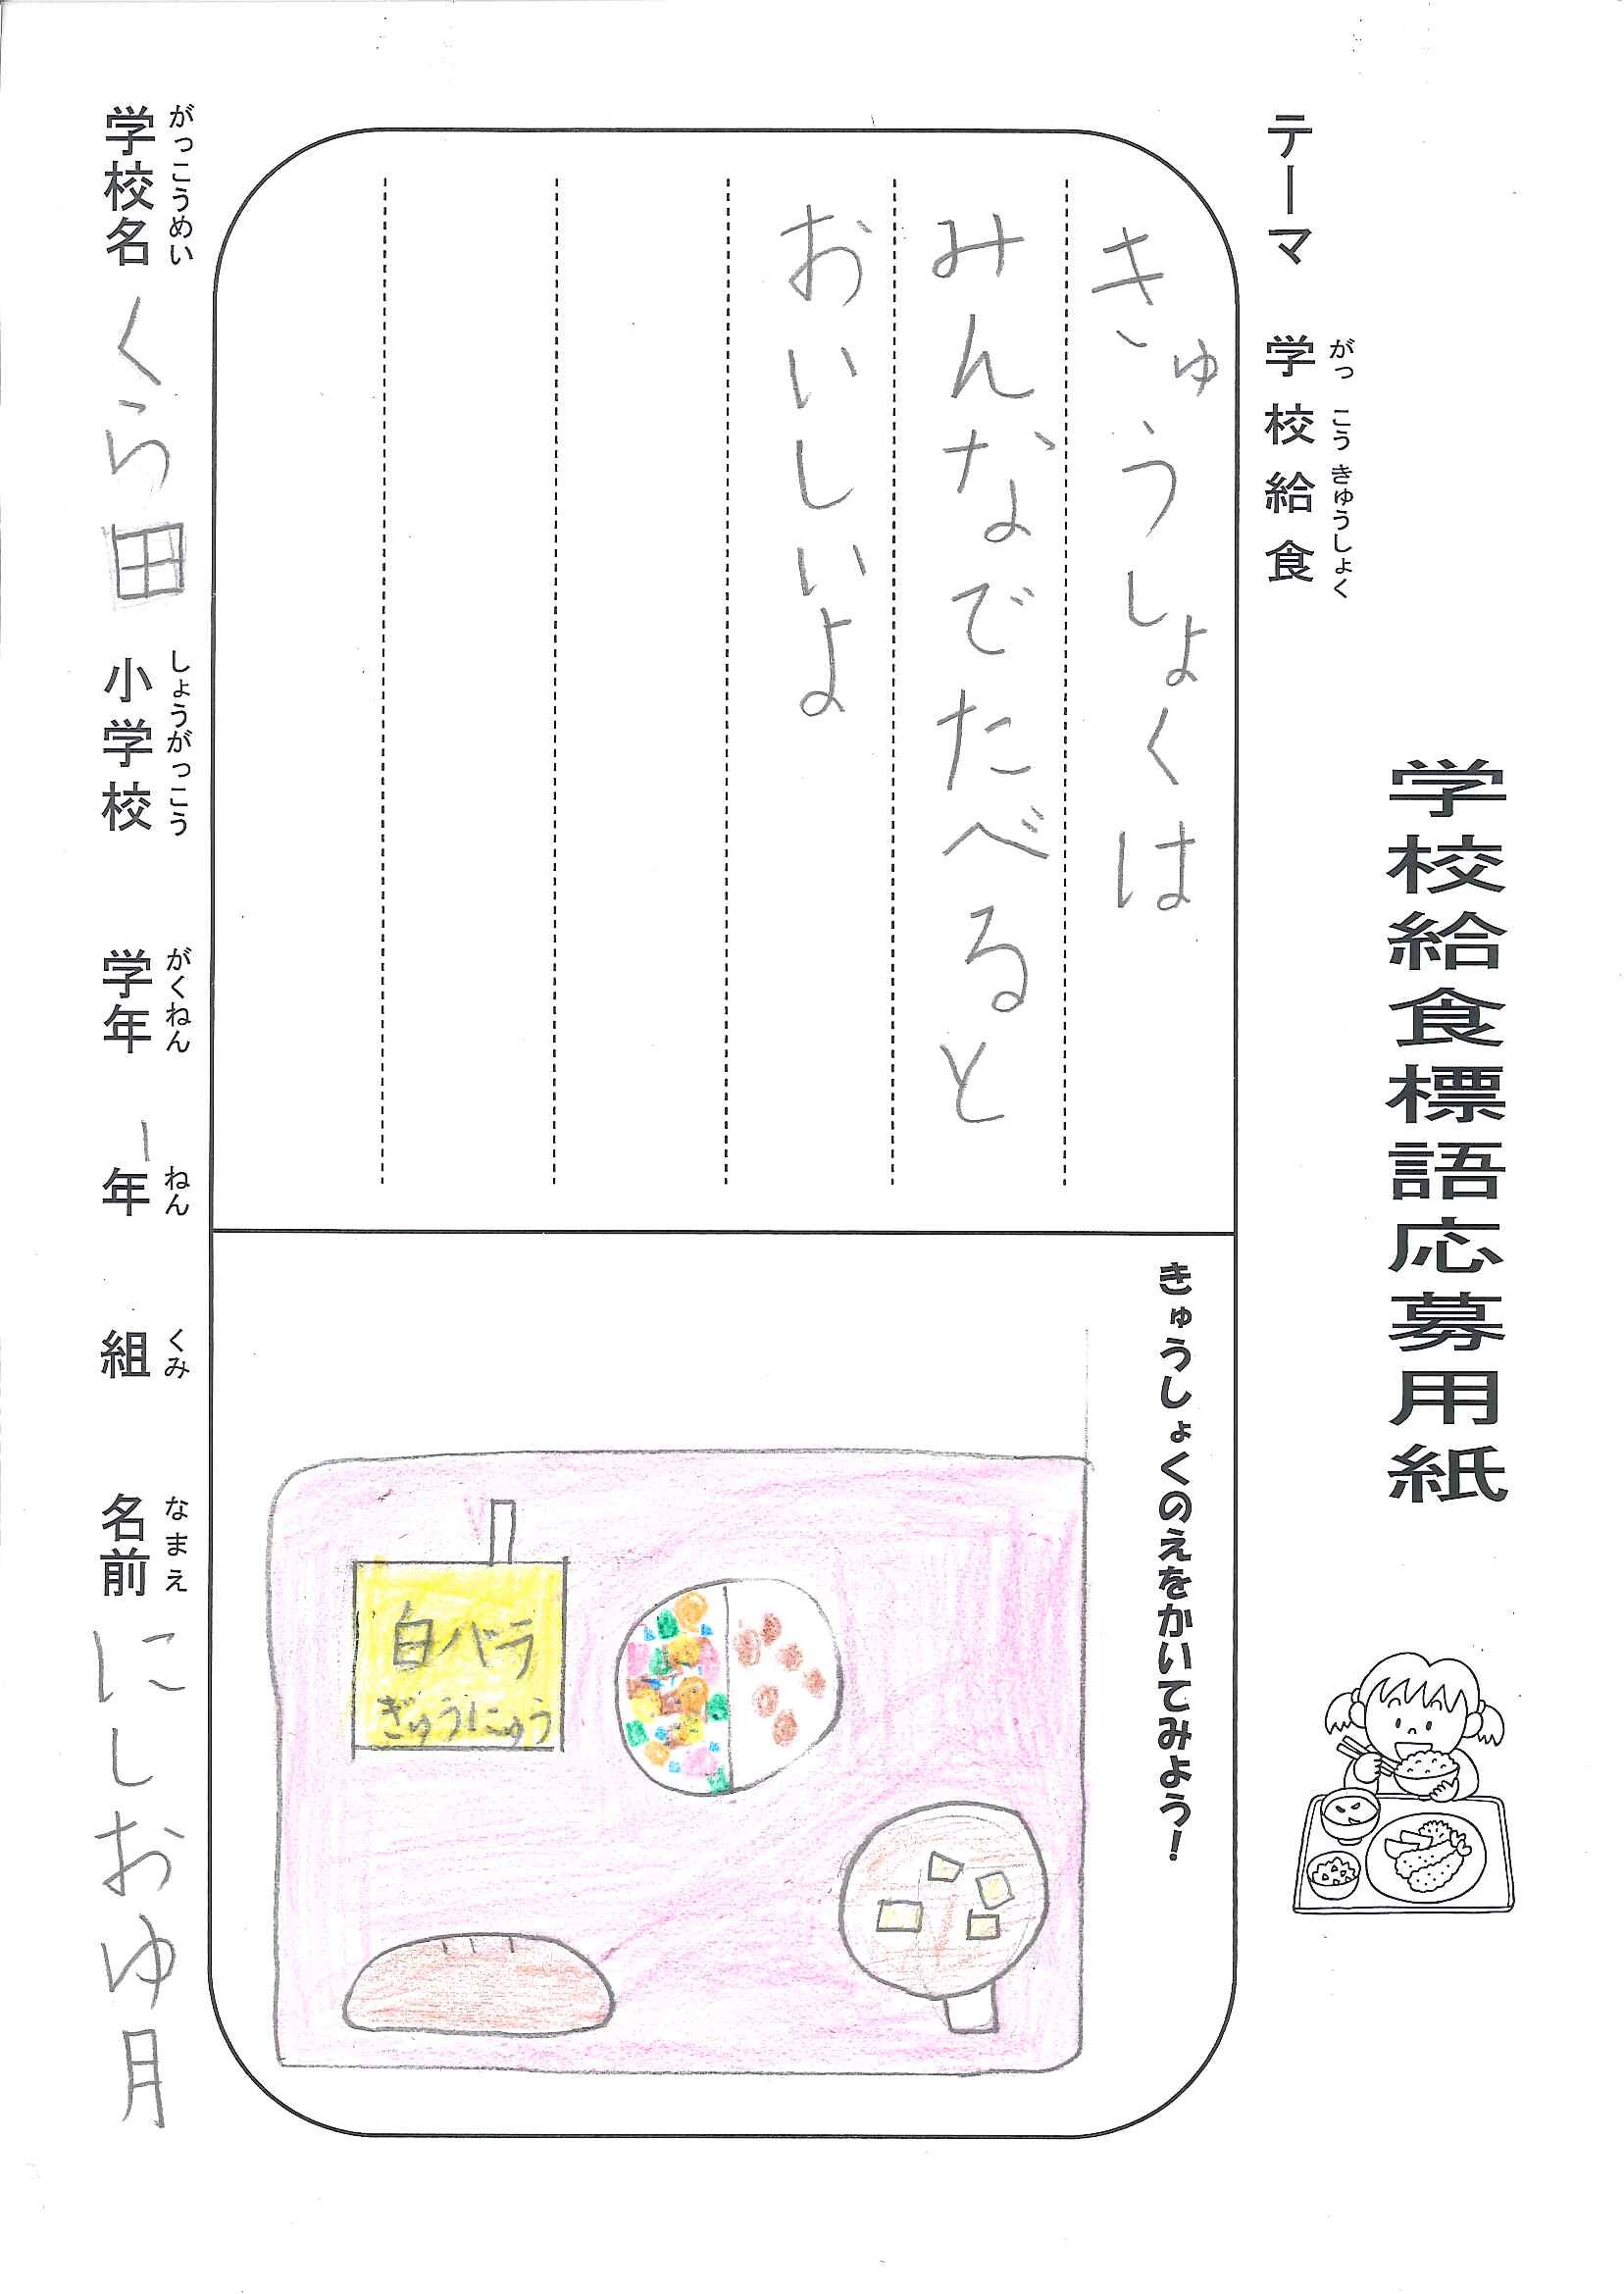 学校給食標語応募用紙
テーマ 学校給食
がっこうきゅうしょく
きゅうしょくは
みんなでたべると
おいしいよ
きゅうしょくのえをかいてみよう！
白バラ
ぎゅうにゅう
がっこうめい しょうがっこう がくねん ねん くみ なまえ
学校名 くら田 小学校 学年 1年 組 名前 にしおゆ月